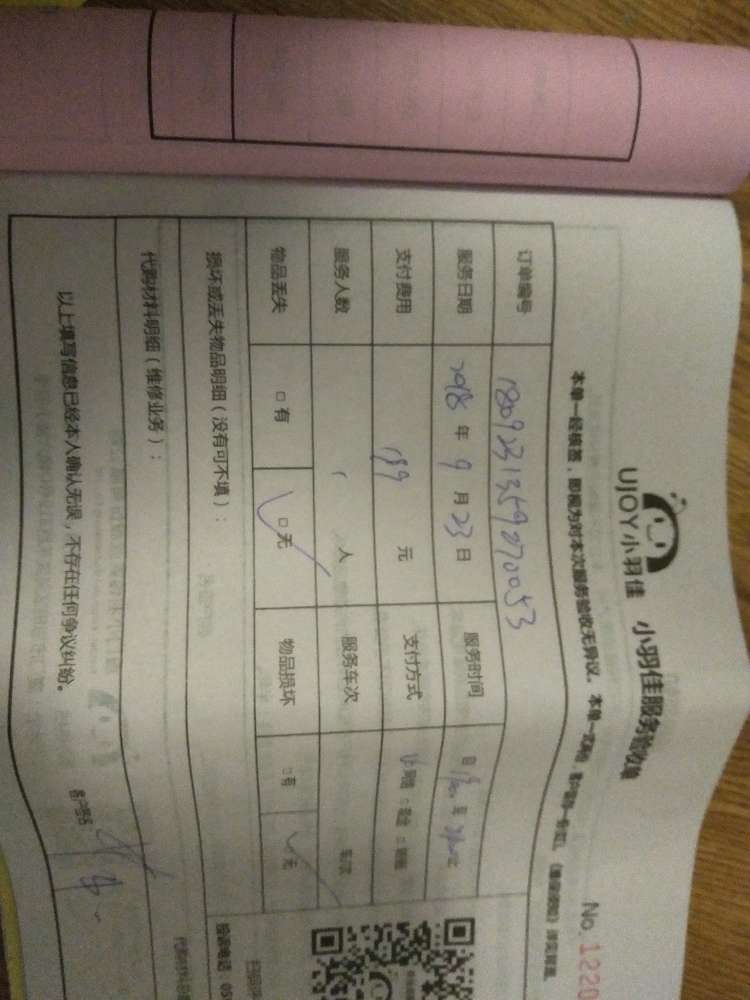 UJOY小羽佳 小羽佳服务验收单
No. 1220
本单一经核签，即视为对本次服务验收无异议。本单一式两份，客户留存一份
订单编号 180923135907 0053
服务日期 2018 年 9 月 23 日 服务时间 自 至
支付费用 189 元 支付方式 网络 □现金
服务人数 1 人 服务车次 车次
物品丢失 □有 □无 物品损坏 □有 □无
损坏或丢失物品明细（没有可不填）：
代购材料明细（维修业务）：
以上填写信息已经本人确认无误，不存在任何争议纠纷。
客户签名
投诉电话 05